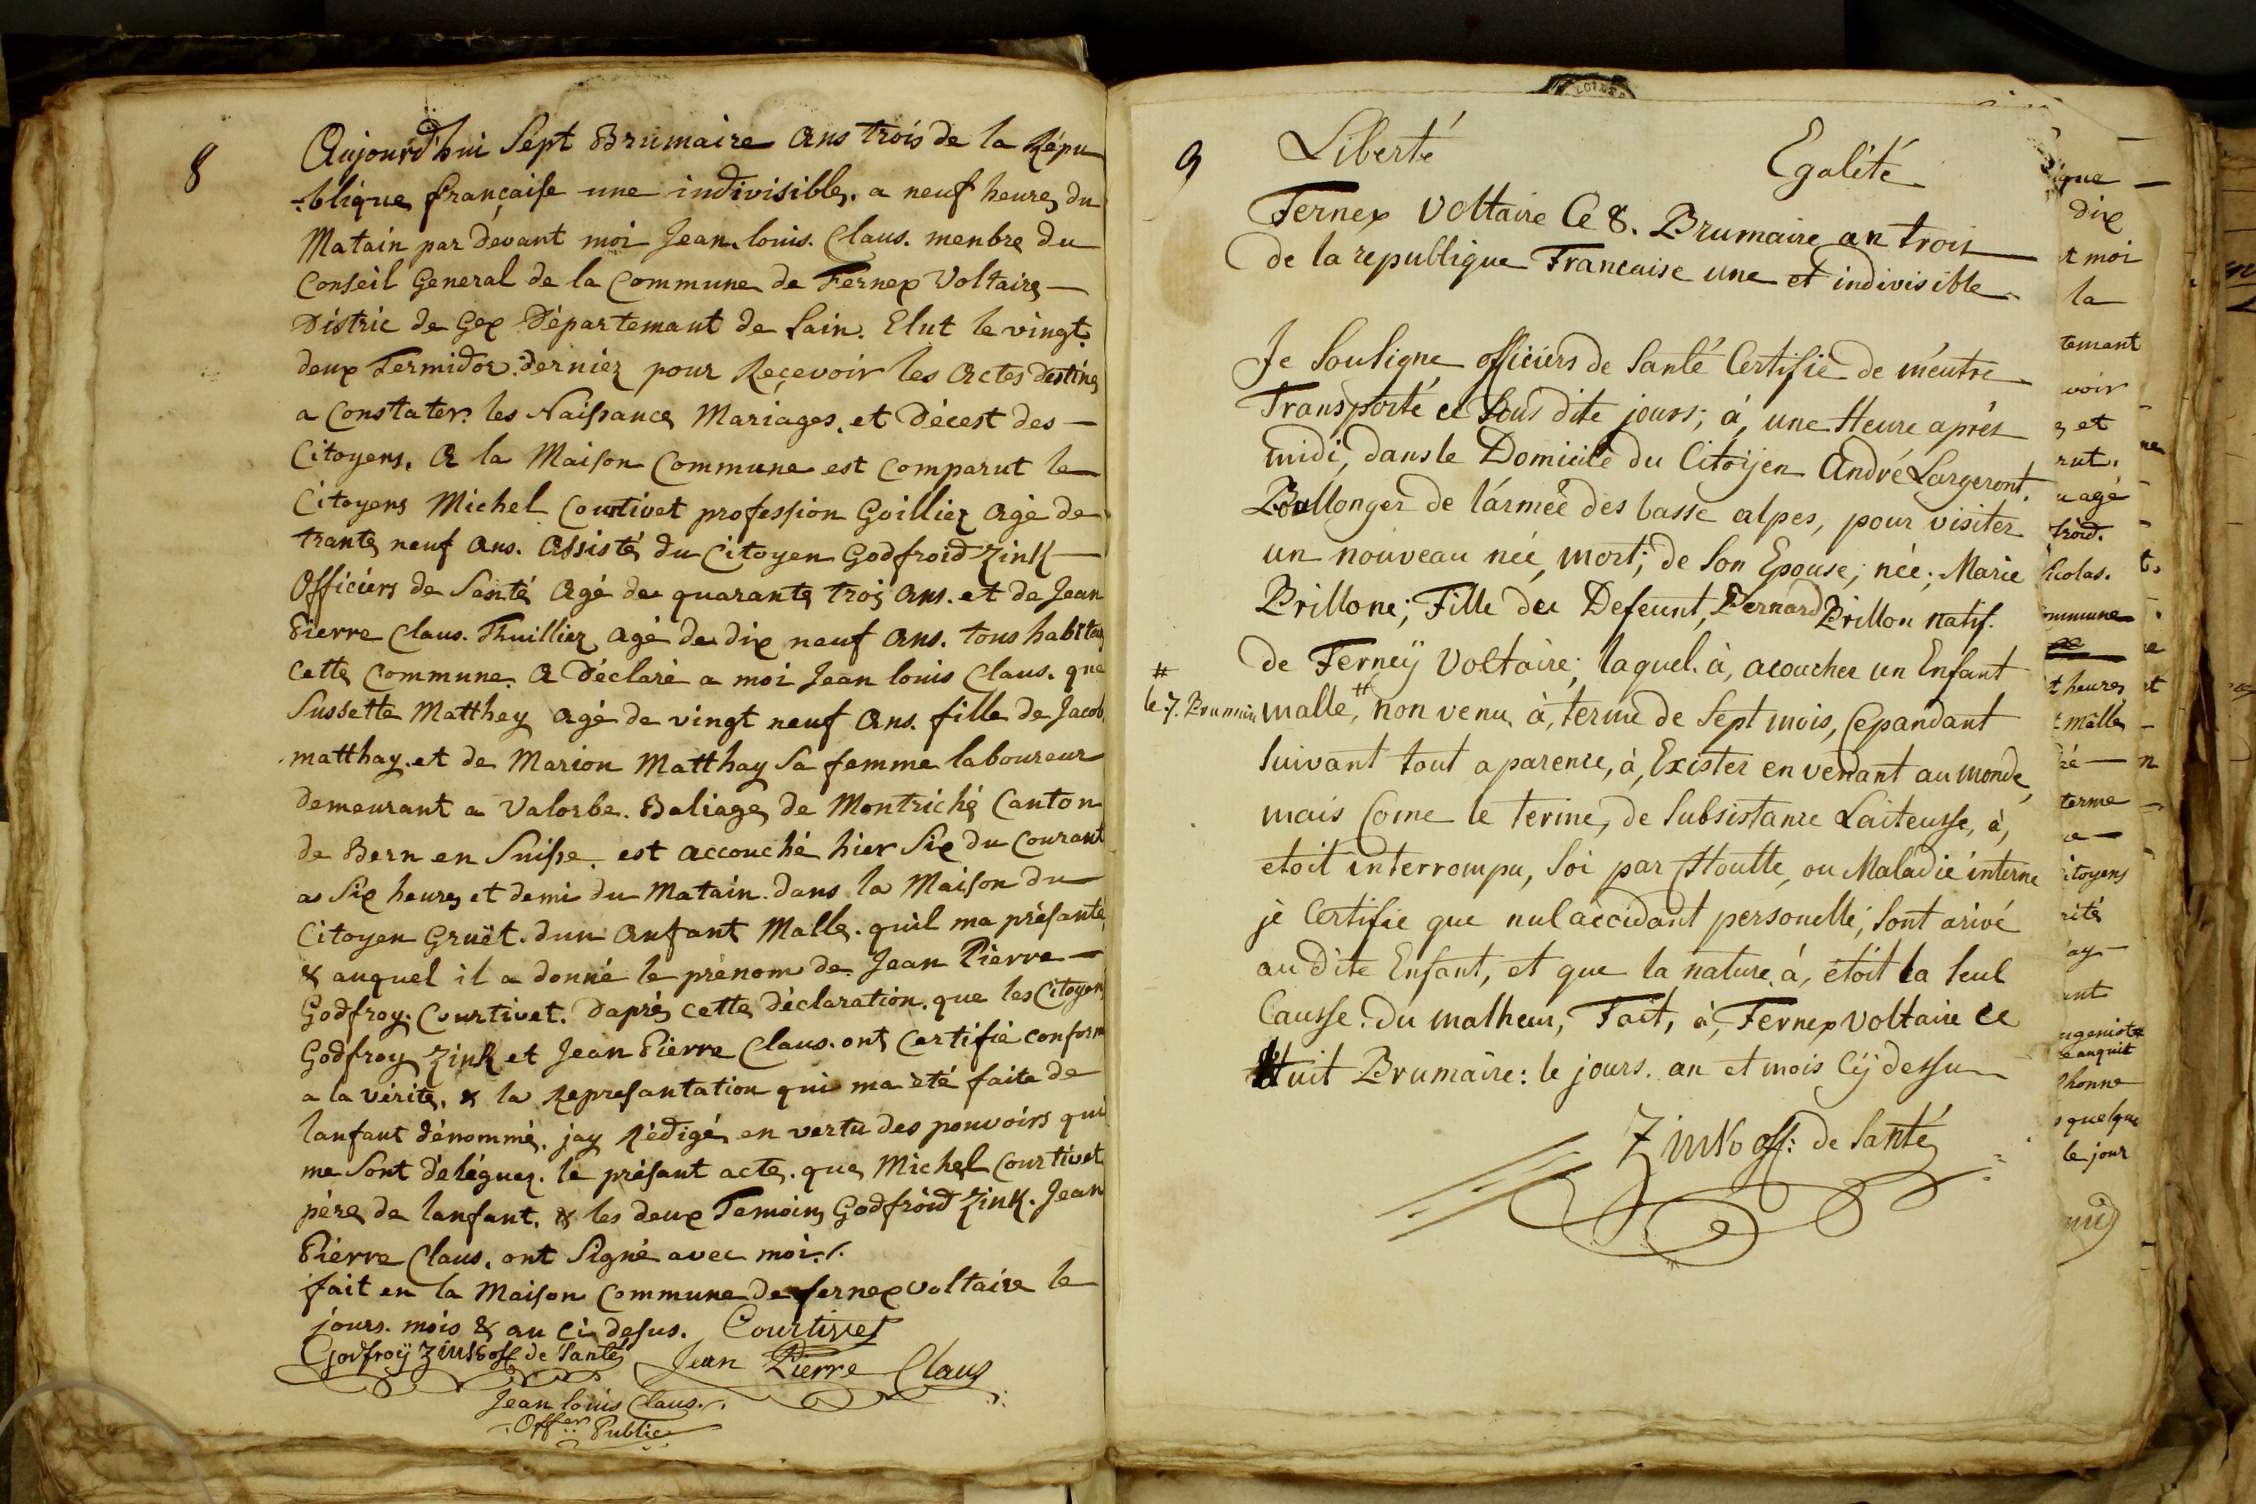 8
Aujourd'hui Sept Brumaire ans trois de la Répu
-blique française une indivisible. a neuf heures du
Matain par devant moi Jean. louis. Claus. menbre du
Conseil General de la Commune de Fernex Voltaire —
District de Gex Département de Lain. Elut le vingt
deux Termidor. dernier pour Reçevoir les actes destinés
a Constater. les Naissance Mariages. et Décest des —
Citoyens. a la Maison Commune est Comparut le
Citoyens Michel Courtivet profession Goillier agé de
trante neuf ans. assisté du Citoyen Godfroid Zink —
Officiers de Santé agé de quarante trois ans. et de Jean
Pierre Claus. Thuillier agé de dix neuf ans. tous habitans
Cette Commune. a Déclaré a moi Jean louis Claus. que
Sussette Matthey agé de vingt neuf ans. fille de Jacob.
matthay. et de Marion Matthay Sa femme laboureur
demeurant a Valorbe. Baliage de Montriché Canton
de Bern en Suisse. est accouché hier Six du Courant
as Six heures et demi du Matain. dans la Maison du
Citoyen Gruët. dun anfant Malle. quil ma présanté
& auquel il a donné le prénom de Jean Pierre —
Godfroy. Courtivet. Daprès cette déclaration. que les Citoyens
Godfroy Zink et Jean Pierre Claus. ont Certifié conforme
a la vérité. & la Représantation qui ma été faite de
lanfant dénommé. jay Rédigé en vertu des pouvoirs qui
me Sont déléguez. le présant acte. que Michel Courtivet
père de lanfant. & les deux Temoins Godfroid Zink. Jean
Pierre Claus. ont Signé avec moi./.
fait en la Maison Commune de fernex voltaire le
jours. mois & an Ci desus. Courtivet
Godfroÿ Zink off de Santé Jean Pierre Claus
Jean louis Claus.
Offer Public
9
Liberté Egalité
Fernex Voltaire Ce 8. Brumaire an trois
de la republique Francaise une et indivisible
Je Souligne officiers de Santé Certifie de m'eutre
Transporté ce Sous dite jours; à, une Heure après
midi, dans le Domicile du Citoijen André Largeront.
Boullonger de l'armée des basse alpes, pour visiter
un nouveau née, mort; de Son Epouse; née; Marie
Brillone; Fille deu Defeunt, Bernard Brillon natif.
de Ferneÿ Voltaire; laquel. à, acoucher un Enfant
#
le 7. Brumaire
malle, # non venu à, terme de Sept mois, Cepandant
Suivant tout aparence, à, Exister en venant au monde,
mais Come le terme, de Subsistance Laiteusse, à,
etoit interrompu, Soi par Houtte, ou Maladie interne
je Certifie que nul accidant personelle, Sont arivé
au dite Enfant, et que la nature à, etoit la Seul
Causse. du malheur, Fait, à, Fernex voltaire ce
Huit Brumaire: le jours. an et mois Cÿ dessu
Zink off: de Santé
dix
et moi
la
temant
voir
et
rut.
agé
froid.
icolas.
ommune
heures
malle
terme
itoyens
rité
ay —
ant
quelque
le jour